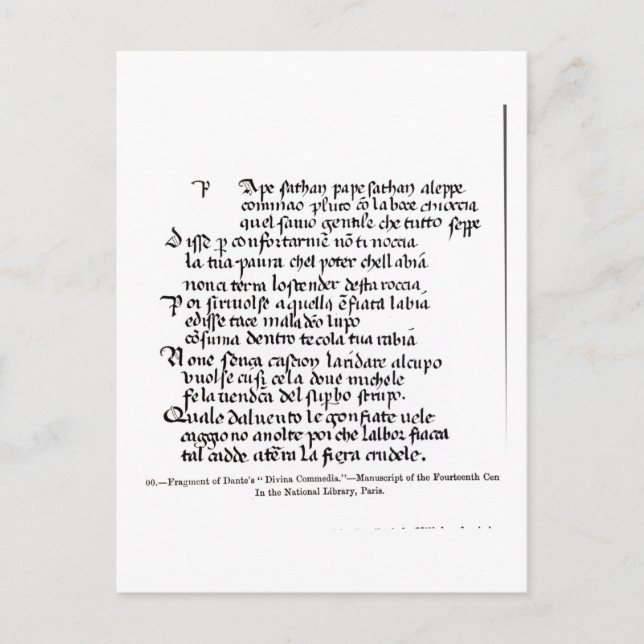 P Ape sathan pape sathan aleppe
cominao pluto cõ la boce chioccia
quel savio gentile che tutto seppe
Disse p̱ confortarmẽ nõ ti noccia
la tua paura chel poter chelli abiã
non ci terra lo scender desta roccia
Poi si rivolse a quella ẽfiata labiã
e disse tace maladeõ lupo
cõsuma dentro te cola tua rabiã
None sença cascion landare al cupo
vuolse cusi cela dove michele
fe la vendcã del sup̱bo strupo.
Quale dal vento le gonfiate vele
caggiono anolte poi che lalbor fiacca
tal cadde a terra la fiera crudele.
00.—Fragment of Dante's "Divina Commedia."—Manuscript of the Fourteenth Cen
In the National Library, Paris.